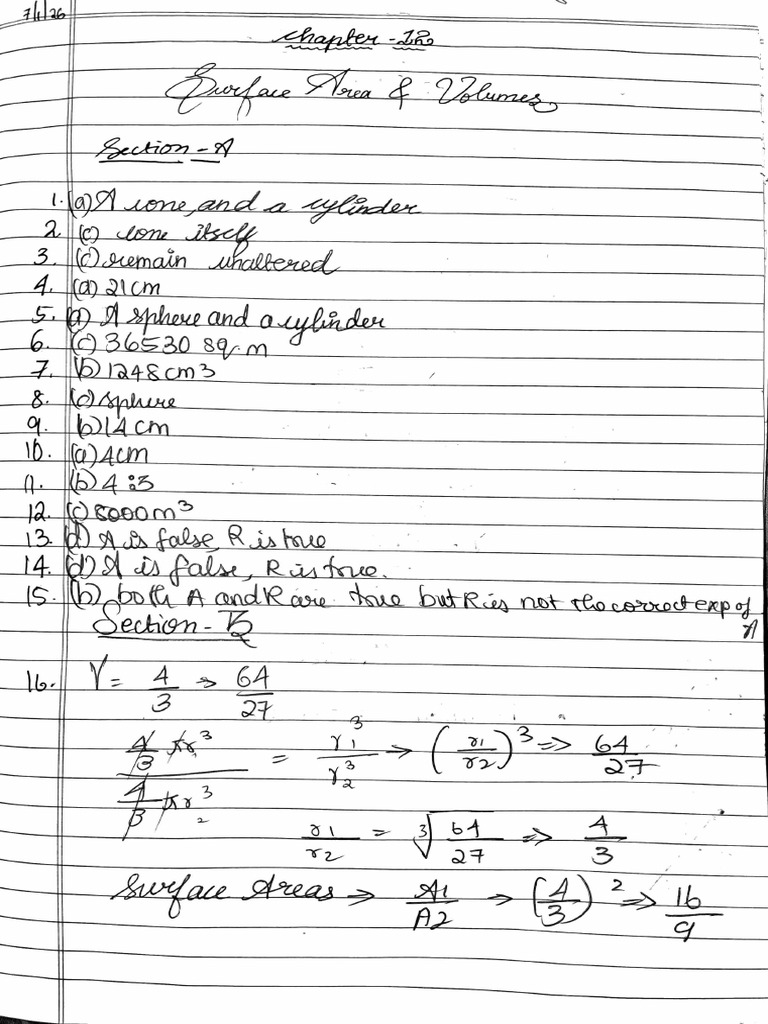 7/1/26
Chapter-12
Surface Area & Volumes
Section-A
1. (a) A cone, and a cylinder
2. (c) cone itself
3. (c) remain unaltered
4. (a) 21cm
5. (a) A sphere and a cylinder
6. (c) 36530 sq.m
7. (b) 1248cm3
8. (c) sphere
9. (b) 14cm
10. (a) 4cm
11. (b) 4:3
12. (c) 8000m³
13. (d) A is false, R is true
14. (d) A is false, R is true.
15. (b) both A and R are true but R is not the correct exp of A
Section-B
16. V = 4/3 ⇒ 64/27
4/3 πr³ / 4/3 πr₂³ = r₁³/r₂³ → (r1/r2)³ ⇒ 64/27
r1/r2 = ³√64/27 ⇒ 4/3
Surface Areas → A1/A2 → (4/3)² ⇒ 16/9